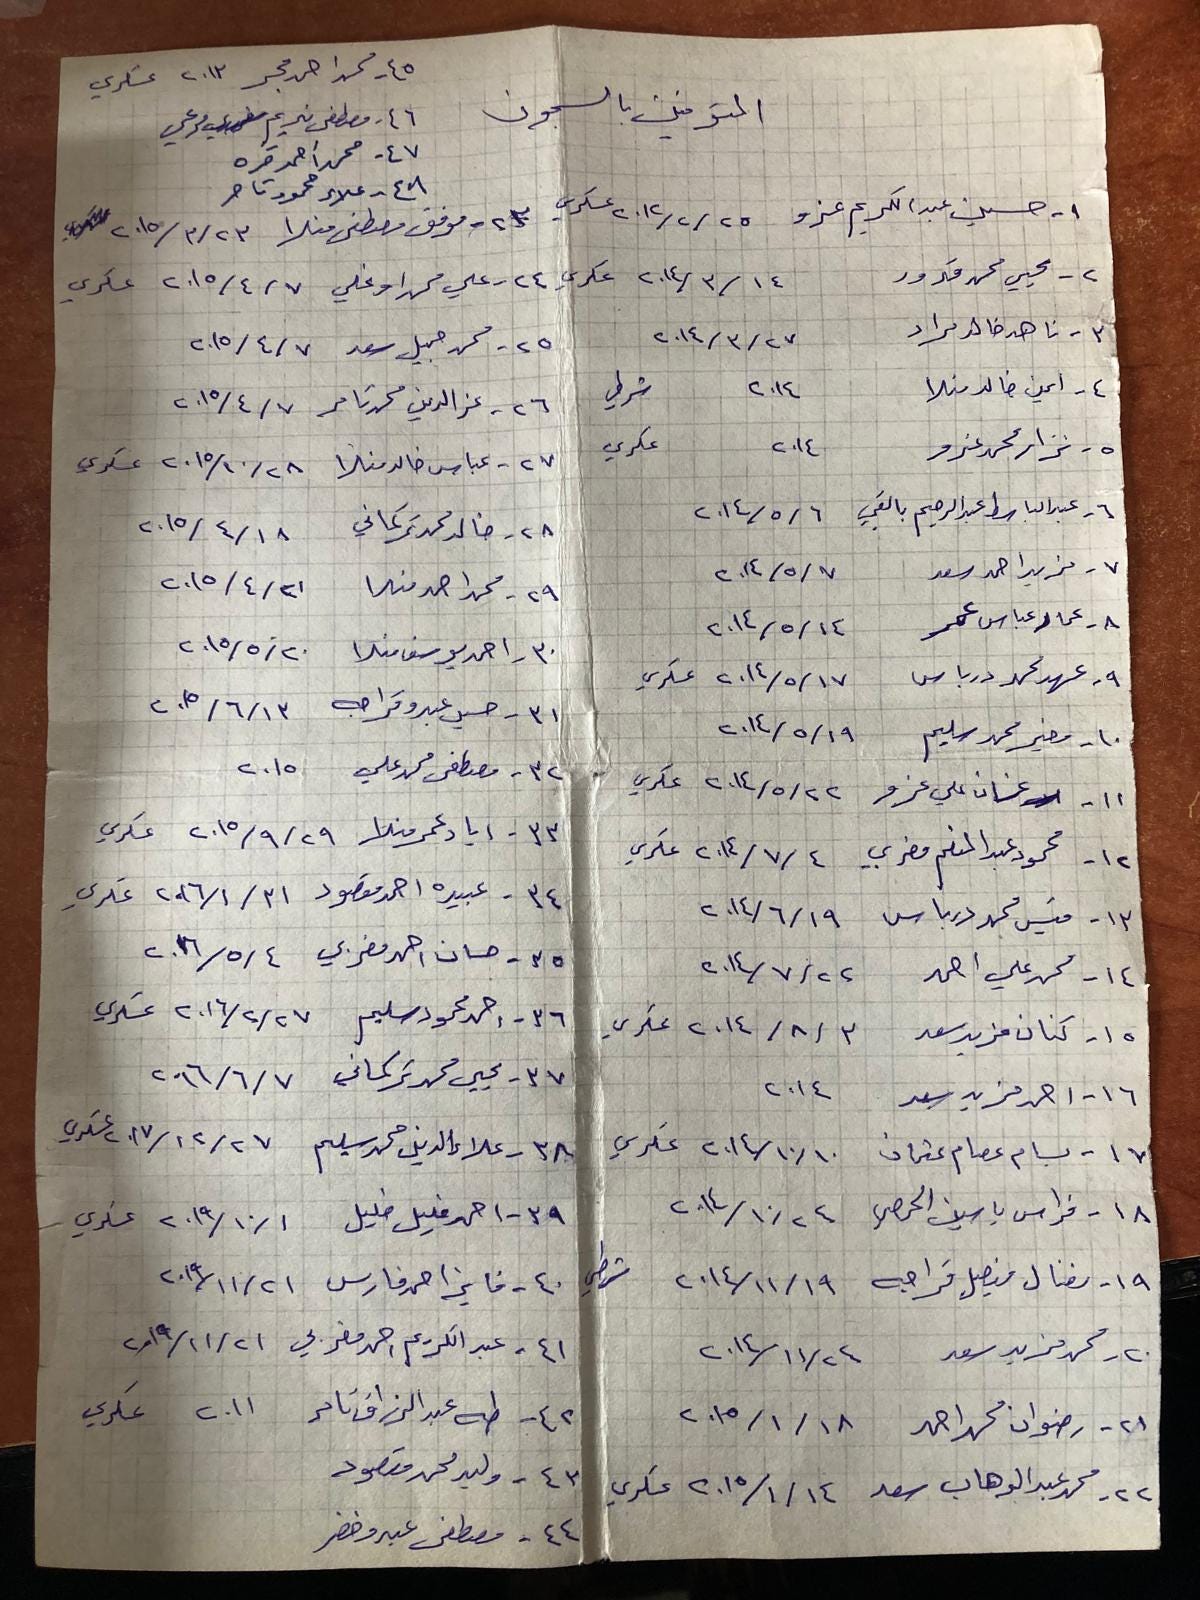 المتوفين بالسجون
١- حسين عبد الكريم عزو ٢٠١٢/٢/٢٥ عسكري
٢- يحيى محمد قدور ٢٠١٤/٣/١٤ عسكري
٣- ناهد خالد مراد ٢٠١٤/٣/٢٧
٤- ايمن خالد منلا ٢٠١٤ شرطي
٥- نزار محمد عزو ٢٠١٤ عسكري
٦- عبد الباسط عبد الرحيم ٢٠١٤/٥/٦
٧- مزيد احمد سعد ٢٠١٤/٥/٧
٨- عماد عباس عمر ٢٠١٤/٥/١٤
٩- عهد محمد درباس ٢٠١٤/٥/١٧ عسكري
١٠- محمد سليم ٢٠١٤/٥/١٩
١١- غسان علي عزو ٢٠١٤/٥/٢٢ عسكري
١٢- محمود عبد المنعم مغربي ٢٠١٤/٧/٤ عسكري
١٣- قيس محمد درباس ٢٠١٤/٦/١٩
١٤- محمد علي احمد ٢٠١٤/٧/٢٢
١٥- كنان مزيد سعد ٢٠١٤/٨/٣ عسكري
١٦- احمد مزيد سعد ٢٠١٤
١٧- بسام عصام عثمان ٢٠١٤/١٠/١٠ عسكري
١٨- فراس ياسين الحمصي ٢٠١٤/١٠/٢٤
١٩- نضال فيصل قراجه ٢٠١٤/١١/١٩ شرطي
٢٠- محمد مزيد سعد ٢٠١٤/١١/٢٤
٢١- رضوان محمد احمد ٢٠١٥/١/١٨
٢٢- محمد عبد الوهاب سعد ٢٠١٥/١/١٤ عسكري
٢٣- موفق مصطفى منلا ٢٠١٥/٣/٢٣
٢٤- علي محمد اوغلي ٢٠١٥/٤/٧ عسكري
٢٥- محمد جميل سعد ٢٠١٥/٤/٧
٢٦- عز الدين محمد تامر ٢٠١٥/٤/٧
٢٧- عباس خالد منلا ٢٠١٥/١٠/٢٨ عسكري
٢٨- خالد محمد تركماني ٢٠١٥/٤/١٨
٢٩- محمد احمد منلا ٢٠١٥/٤/٢١
٣٠- احمد يوسف منلا ٢٠١٥/٥/٢٠
٣١- حسين عبدو قراجه ٢٠١٥/٦/١٣
٣٢- مصطفى محمد علي ٢٠١٥
٣٣- اياد عمر منلا ٢٠١٥/٩/٢٩ عسكري
٣٤- عبيده احمد مقصود ٢٠١٦/١/٣١ عسكري
٣٥- حسان احمد مغربي ٢٠١٦/٥/٤
٣٦- احمد محمود سليم ٢٠١٦/٢/٢٧ عسكري
٣٧- يحيى محمد تركماني ٢٠١٦/٦/٧
٣٨- علاء الدين محمد سليم ٢٠١٧/١٢/٢٧ عسكري
٣٩- احمد خليل خليل ٢٠١٩/١٠/١ عسكري
٤٠- فايز احمد فارس ٢٠١٩/١١/٢١
٤١- عبد الكريم احمد مغربي ٢٠١٩/١١/٢١
٤٢- طه عبد الرزاق تامر ٢٠١١ عسكري
٤٣- وليد محمد مقصود
٤٤- مصطفى عبدو خضر
٤٥- محمد احمد مجبر ٢٠١٣ عسكري
٤٦- مصطفى نديم مرعي
٤٧- محمد احمد قره
٤٨- علاء محمود تامر